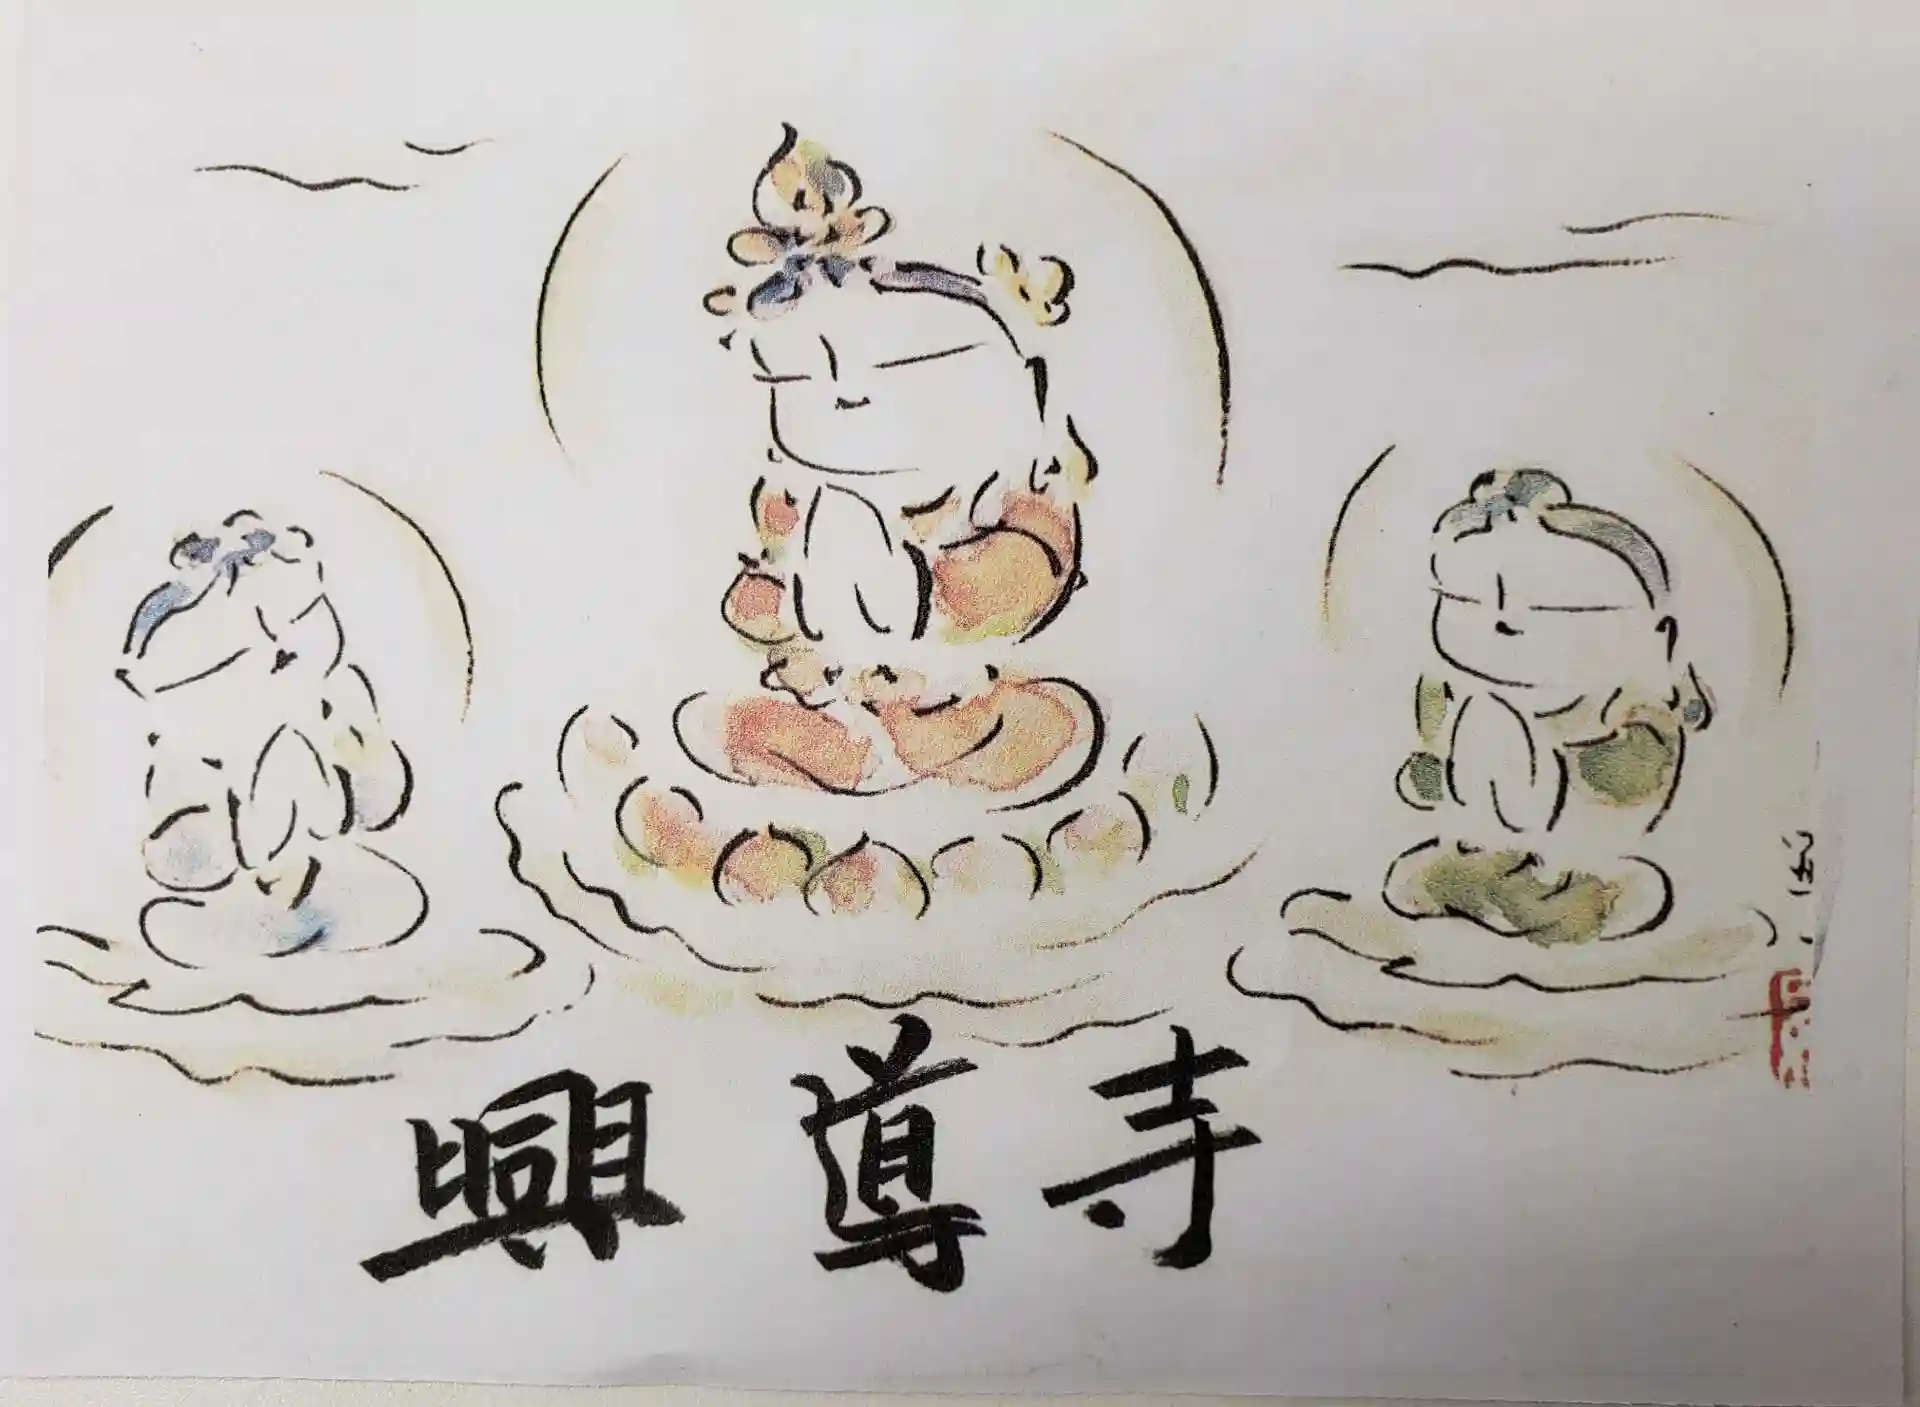 興導寺